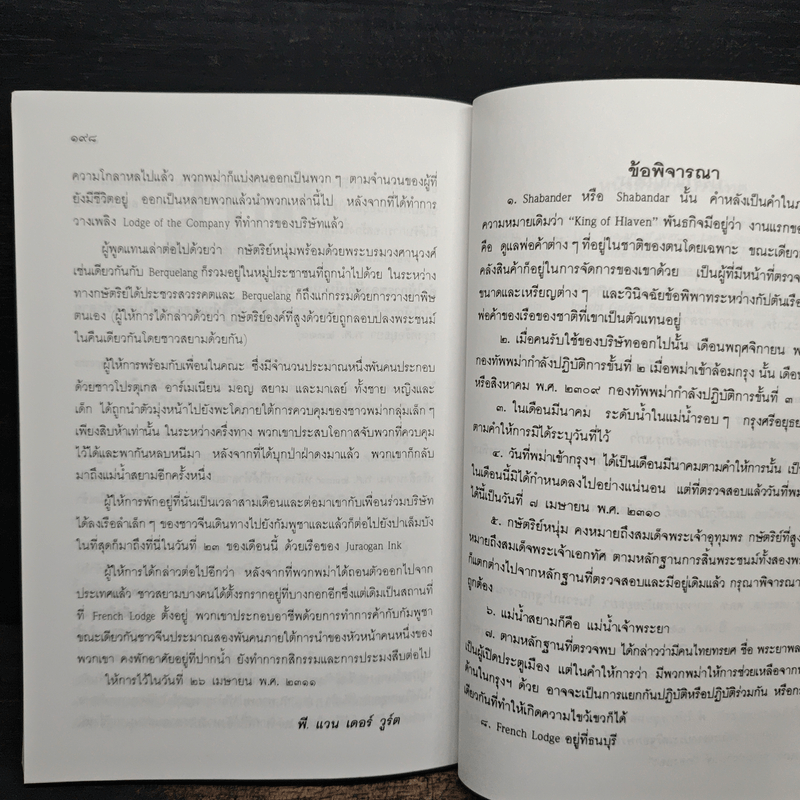 ๑๙๘
ความโกลาหลไปแล้ว พวกพม่าก็แบ่งคนออกเป็นพวก ๆ ตามจำนวนของผู้ที่
ยังมีชีวิตอยู่ ออกเป็นหลายพวกแล้วนำพวกเหล่านี้ไป หลังจากที่ได้ทำการ
วางเพลิง Lodge of the Company ที่ทำการของบริษัทแล้ว
ผู้พูดแทนเล่าต่อไปด้วยว่า กษัตริย์หนุ่มพร้อมด้วยพระบรมวงศานุวงศ์
เช่นเดียวกันกับ Berquelang ก็รวมอยู่ในหมู่ประชาชนที่ถูกนำไปด้วย ในระหว่าง
ทางกษัตริย์ได้ประชวรสวรรคตและ Berquelang ก็ถึงแก่กรรมด้วยการวางยาพิษ
ตนเอง (ผู้ให้การได้กล่าวด้วยว่า กษัตริย์องค์ที่สูงด้วยวัยถูกลอบปลงพระชนม์
ในคืนเดียวกันโดยชาวสยามด้วยกัน)
ผู้ให้การพร้อมกับเพื่อนในคณะ ซึ่งมีจำนวนประมาณหนึ่งพันคนประกอบ
ด้วยชาวโปรตุเกส อาร์เมเนียน มอญ สยาม และมาเลย์ ทั้งชาย หญิงและ
เด็ก ได้ถูกนำตัวมุ่งหน้าไปยังพะโคภายใต้การควบคุมของชาวพม่ากลุ่มเล็ก ๆ
เพียงสิบห้าเท่านั้น ในระหว่างครึ่งทาง พวกเขาประสบโอกาสจับพวกที่ควบคุม
ไว้ได้และพากันหลบหนีมา หลังจากที่ได้บุกป่าฝ่าดงมาแล้ว พวกเขาก็กลับ
มาถึงแม่น้ำสยามอีกครั้งหนึ่ง
ผู้ให้การพักอยู่ที่นั่นเป็นเวลาสามเดือนและต่อมาเขากับเพื่อนร่วมบริษัท
ได้ลงเรือลำเล็ก ๆ ของชาวจีนเดินทางไปยังกัมพูชาและแล้วก็ต่อไปยังปาเล็มบัง
ในที่สุดก็มาถึงที่นี่ในวันที่ ๒๓ ของเดือนนี้ ด้วยเรือของ Juraogan Ink
ผู้ให้การได้กล่าวต่อไปอีกว่า หลังจากที่พวกพม่าได้ถอนตัวออกไปจาก
ประเทศแล้ว ชาวสยามบางคนได้ตั้งรกรากอยู่ที่บางกอกอีกซึ่งแต่เดิมเป็นสถานที่
ที่ French Lodge ตั้งอยู่ พวกเขาประกอบอาชีพด้วยการทำการค้ากับกัมพูชา
ขณะเดียวกันชาวจีนประมาณสองพันคนภายใต้การนำของหัวหน้าคนหนึ่งของ
พวกเขา คงพักอาศัยอยู่ที่ปากน้ำ ยังทำการกสิกรรมและการประมงสืบต่อไป
ให้การไว้ในวันที่ ๒๖ เมษายน พ.ศ. ๒๓๑๑
พี. แวน เดอร์ วูร์ต
ข้อพิจารณา
๑. Shabander หรือ Shabandar นั้น คำหลังเป็นคำใน
ความหมายเดิมว่า “King of Hlaven” พันธกิจมีอยู่ว่า งานแรกของ
คือ ดูแลพ่อค้าต่าง ๆ ที่อยู่ในชาติของตนโดยเฉพาะ ขณะเดียว
คลังสินค้าก็อยู่ในการจัดการของเขาด้วย เป็นผู้ที่มีหน้าที่ตรวจ
ขนาดและเหรียญต่าง ๆ และวินิจฉัยข้อพิพาทระหว่างกัปตันเรือ
พ่อค้าของเรือของชาติที่เขาเป็นตัวแทนอยู่
๒. เมื่อคนรับใช้ของบริษัทออกไปนั้น เดือนพฤศจิกายน
กองทัพพม่ากำลังปฏิบัติการขั้นที่ ๒ เมื่อพม่าเข้าล้อมกรุง นั้น เดือน
หรือสิงหาคม พ.ศ. ๒๓๐๙ กองทัพพม่ากำลังปฏิบัติการขั้นที่ ๓
๓. ในเดือนมีนาคม ระดับน้ำในแม่น้ำรอบ ๆ กรุงศรีอยุธย
ตามคำให้การมิได้ระบุวันที่ไว้
๔. วันที่พม่าเข้ากรุงฯ ได้เป็นเดือนมีนาคมตามคำให้การนั้น
ในเดือนนี้มิได้กำหนดลงไปอย่างแน่นอน แต่ที่ตรวจสอบแล้ววันที่พม
ได้นี้เป็นวันที่ ๗ เมษายน พ.ศ. ๒๓๑๐
๕. กษัตริย์หนุ่ม คงหมายถึงสมเด็จพระเจ้าอุทุมพร กษัตริย์ที่สูง
หมายถึงสมเด็จพระเจ้าเอกทัศ ตามหลักฐานการสิ้นพระชนม์ทั้งสอง
ก็แตกต่างไปจากหลักฐานที่ตรวจสอบและมีอยู่เดิมแล้ว กรุณาพิจารณา
ถูกต้อง
๖. แม่น้ำสยามก็คือ แม่น้ำเจ้าพระยา
๗. ตามหลักฐานที่ตรวจพบ ได้กล่าวว่ามีคนไทยทรยศ ชื่อ พระยาพล
เป็นผู้เปิดประตูเมือง แต่ในคำให้การว่า มีพวกพม่าให้การช่วยเหลือจาก
ด้านในกรุงฯ ด้วย อาจจะเป็นการแยกกันปฏิบัติหรือปฏิบัติร่วมกัน หรือ
เดียวกันที่ทำให้เกิดความไขว้เขวก็ได้
๘. French Lodge อยู่ที่ธนบุรี